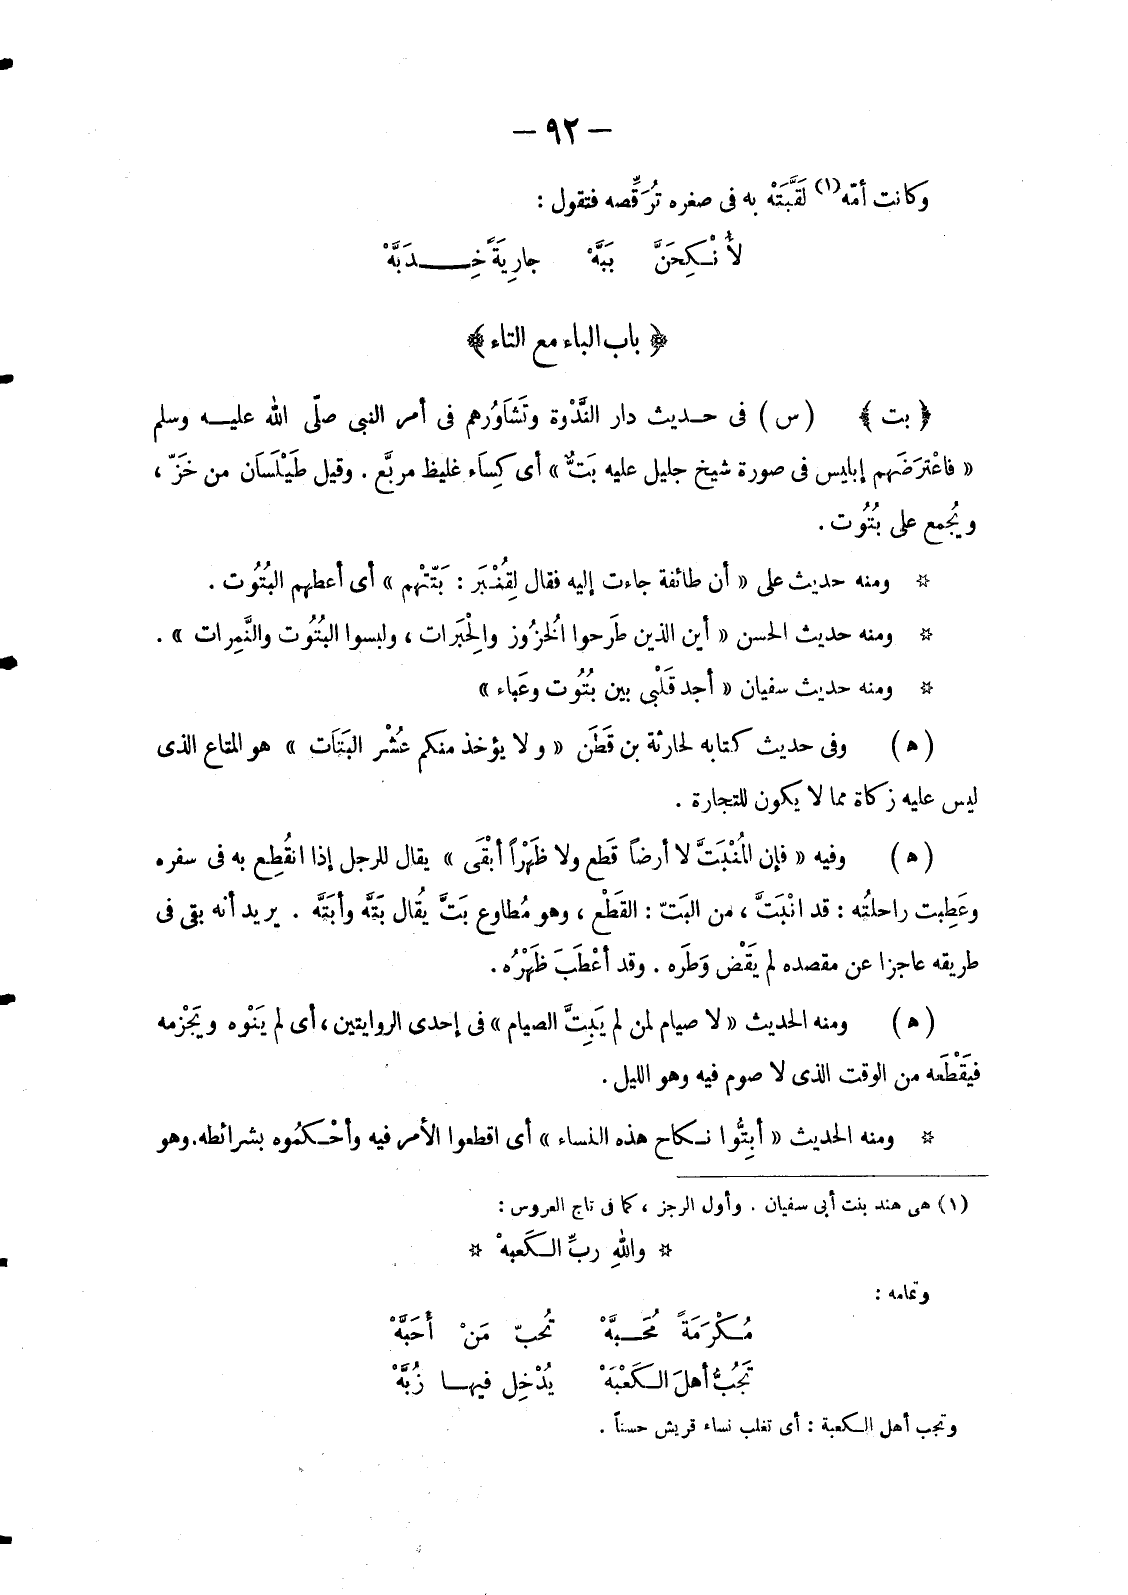 — ٩٢ —
وكانت أمّه (١) لَقَّبَتْه به فى صغره تُرَقِّصه فتقول :
لأُنْكِحَنَّ بَبَّهْ جارِيَةً خِدَبَّهْ
﴿ باب الباء مع التاء ﴾
﴿ بت ﴾ (س) فى حديث دار النَّدْوة وتَشَاوُرهم فى أمر النبى صلّى الله عليه وسلم
« فاعْترَضَهم إبليس فى صورة شيخ جليل عليه بَتٌّ » أى كِسَاء غليظ مربَّع . وقيل طَيْلَسَان من خَزّ ،
ويُجمع على بُتُوت .
* ومنه حديث على « أن طائفة جاءت إليه فقال لِقُنْبَر : بَتّتْهم » أى أعطهم البُتُوت .
* ومنه حديث الحسن « أين الذين طَرحوا الُخزُوز والِحْبَرات ، ولبسوا البُتُوت والنَّمِرات » .
* ومنه حديث سفيان « أجد قَلْبى بين بُتُوت وعَباء »
(ه) وفى حديث كتابه لحارثة بن قَطَن « ولا يؤخذ منكم عُشْر البَتَات » هو المتاع الذى
ليس عليه زكاة مما لا يكون للتجارة .
(ه) وفيه « فإن الُمنْبَتَّ لا أرضاً قَطع ولا ظَهْراً أبْقَى » يقال للرجل إذا انقُطِع به فى سفره
وعَطِبت راحلتُه : قد انْبَتَّ ، من البَتّ : القَطْع ، وهو مُطاوع بَتَّ يُقال بَتَّه وأبَتَّه . يريد أنه بقى فى
طريقه عاجزا عن مقصده لم يَقْض وَطَره . وقد أعْطَبَ ظَهْرُه .
(ه) ومنه الحديث « لا صيام لمن لم يَبِتَّ الصيام » فى إحدى الروايتين ، أى لم يَنْوه ويَجْزمه
فيَقْطَعه من الوقت الذى لا صوم فيه وهو الليل .
* ومنه الحديث « أبِتُّوا نكاح هذه النساء » أى اقطعوا الأمر فيه وأحْكمُوه بشرائطه . وهو
(١) هى هند بنت أبى سفيان . وأول الرجز ، كما فى تاج العروس :
* واللهِ ربِّ الكَعبهْ *
وتمامه :
مُكْرَمَةً مُحَبَّهْ تُحبّ مَنْ أَحَبَّهْ
تَجُبُّ أهلَ الكَعْبَهْ يُدْخِل فيها زُبَّهْ
وتجب أهل الكعبة : أى تغلب نساء قريش حسناً .